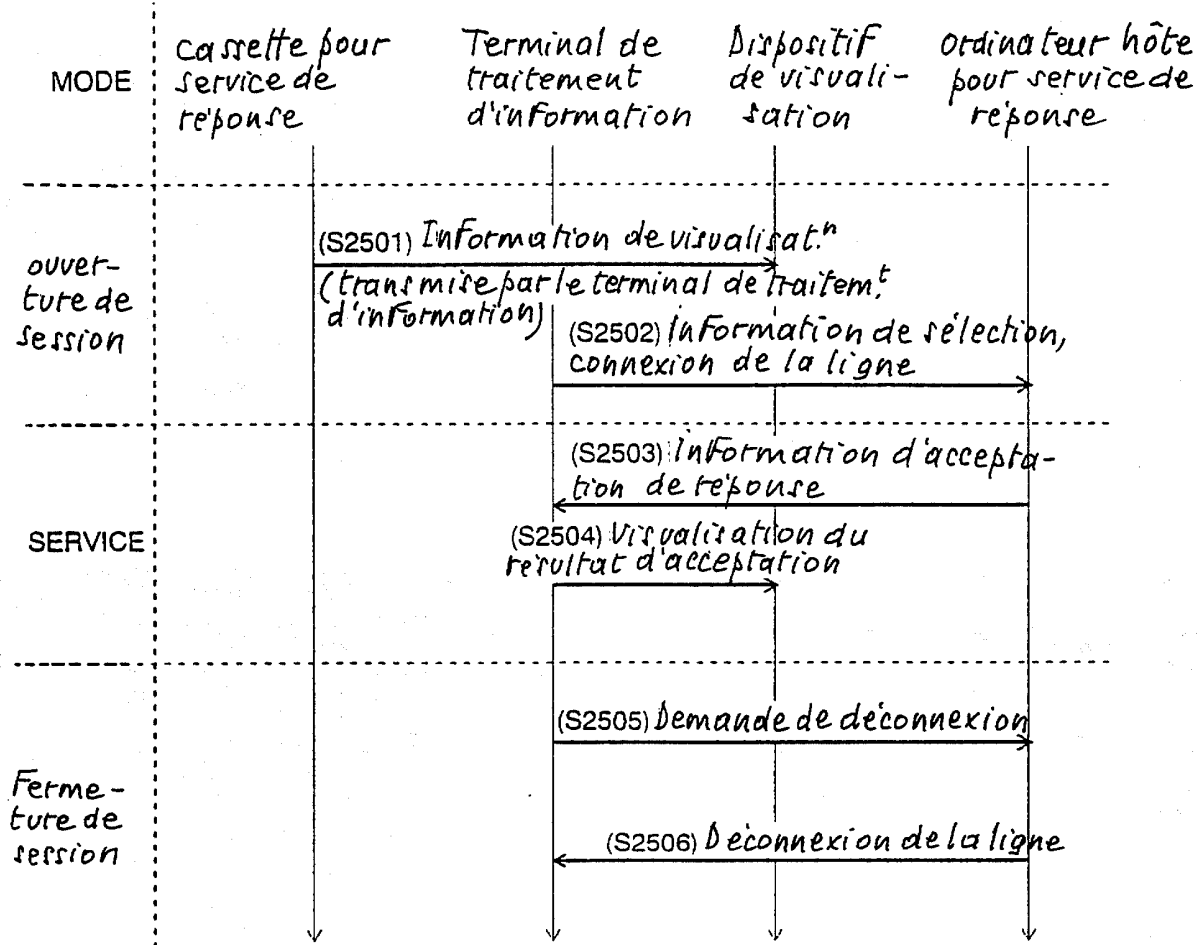 MODE
cassette pour
service de
réponse
Terminal de
traitement
d'information
Dispositif
de visuali-
sation
ordinateur hôte
pour service de
réponse
ouver-
ture de
session
(S2501) Information de visualisat.ⁿ
(transmise par le terminal de traitem.ᵗ
d'information)
(S2502) information de sélection,
connexion de la ligne
SERVICE
(S2503) information d'accepta-
tion de réponse
(S2504) Visualisation du
résultat d'acceptation
Ferme-
ture de
session
(S2505) Demande de déconnexion
(S2506) Déconnexion de la ligne